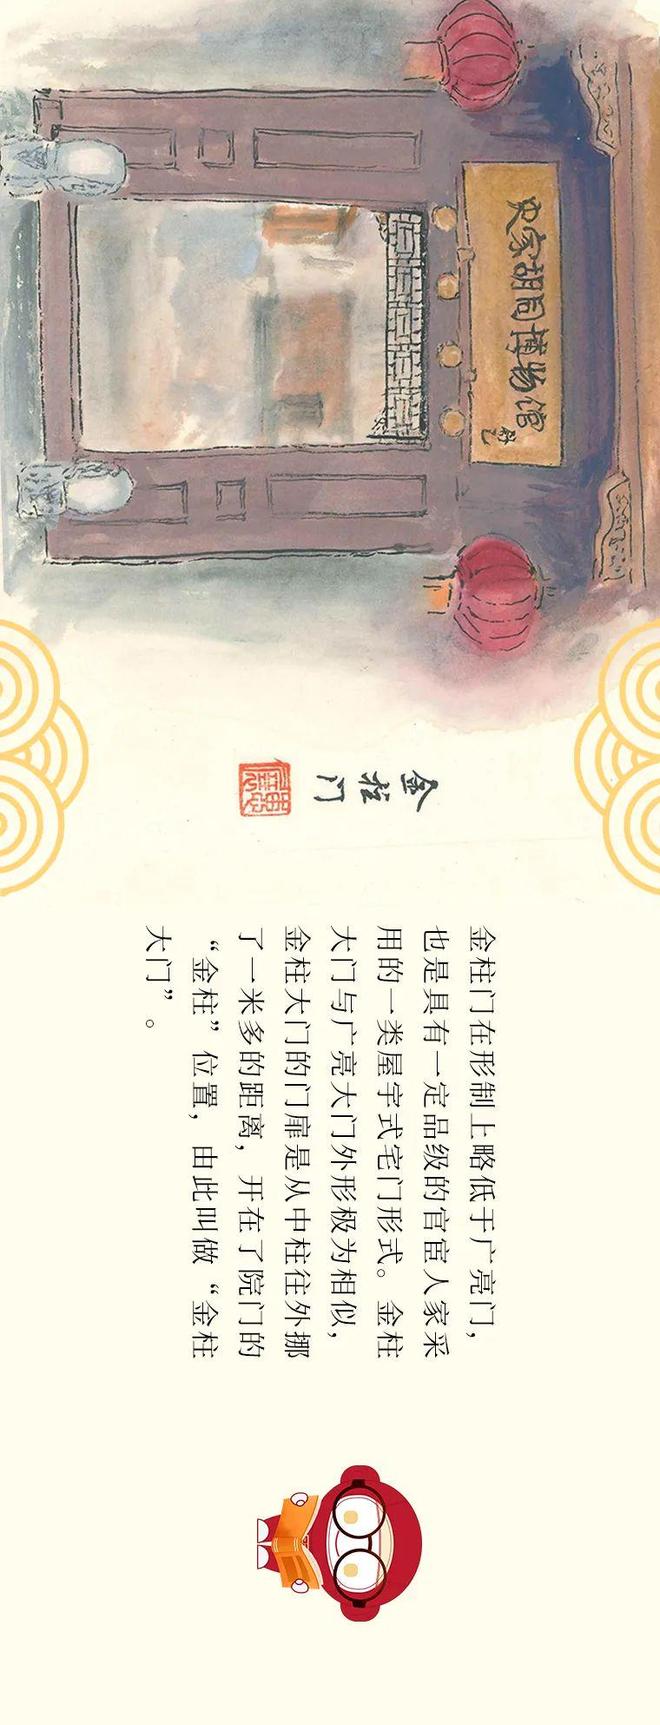 史家胡同博物馆
金柱门
金柱门在形制上略低于广亮门，
也是具有一定品级的官宦人家采
用的一类屋宇式宅门形式。金柱
大门与广亮大门外形极为相似，
金柱大门的门扉是从中柱往外挪
了一米多的距离，开在了院门的
“金柱”位置，由此叫做“金柱
大门”。